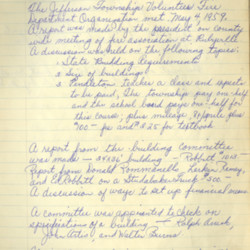 The Jefferson Township Volunteer Fire
Department Organization met May 4, 1959.
A report was made by the president on county
wide meeting of fire association at Ridgeville
A discussion was held on the following topics:
1 State Building Requirements
2 Size of building
3 Pendleton teaches a class and expects
to be paid, The township pay one-half
and the school board pays one-half for
this course; plus mileage,
and for textbook
A report from the building committee
was made — building —
Report from Donald
and on a Studebaker Truck
A discussion of ways to set up financial
A committee was appointed to check on
specifications of a building — Ralph
John and Walter